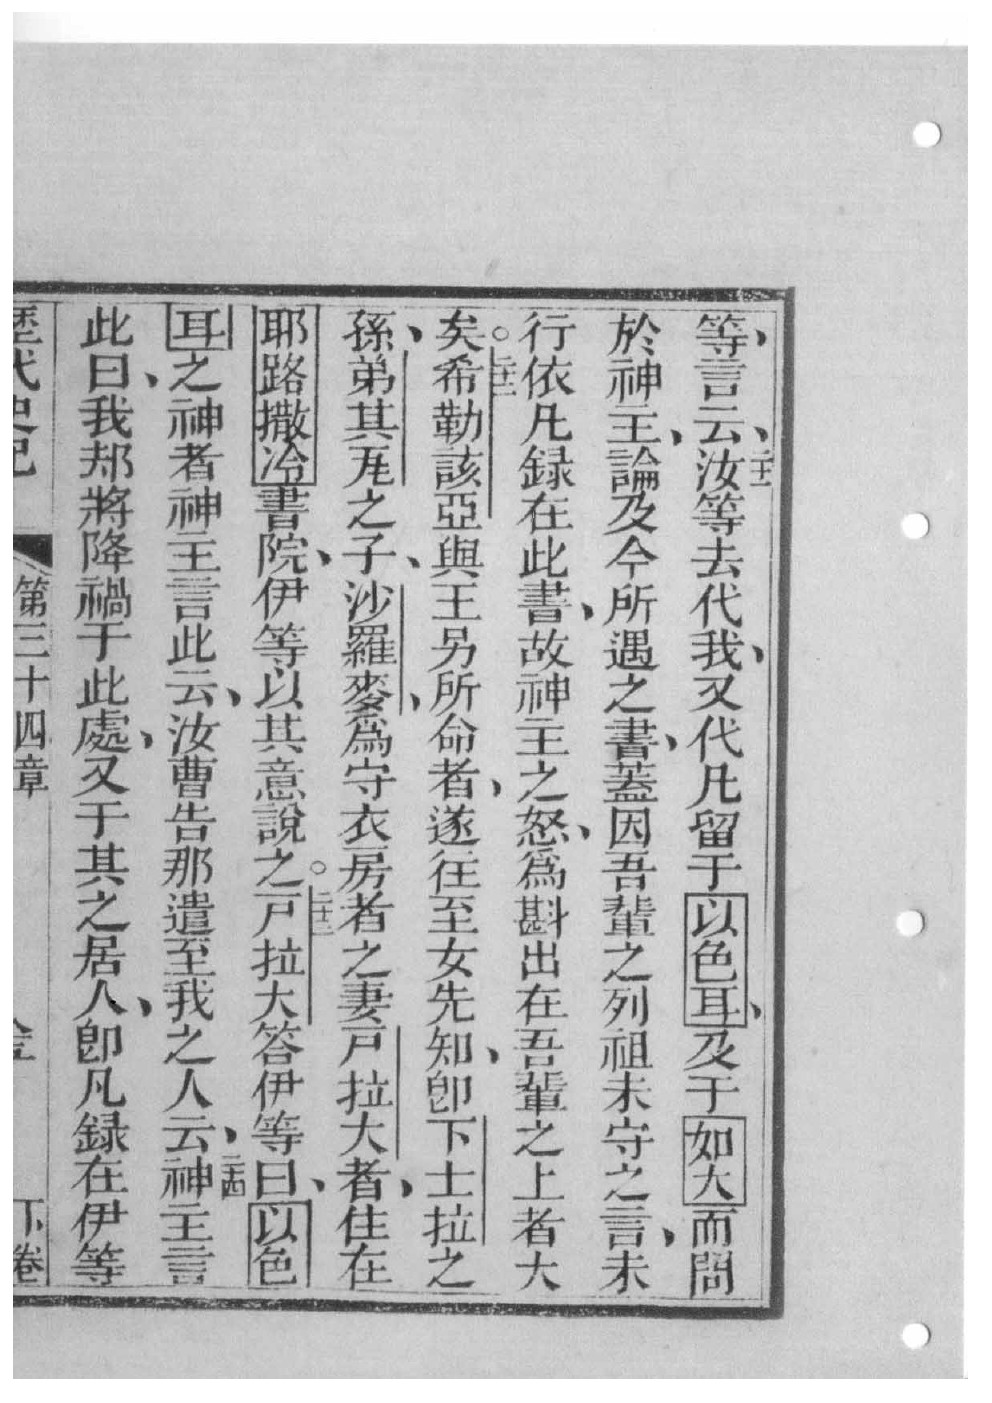 等、言云、二十一汝等去代我、又代凡留于以色耳、及于如大而問
於神主、論及今所遇之書、蓋因吾輩之列祖未守之言、未
行依凡録在此書、故神主之怒、為斟出在吾輩之上者大
矣。二十二希勒該亞與王另所命者、遂往至女先知、即下士拉之
孫、弟其厇之子、沙羅麥、為守衣房者之妻戸拉大者、住在
耶路撒冷書院、伊等以其意說之。二十三戸拉大答伊等曰、以色
耳之神者神主言此云、汝曹告那遣至我之人云、二十四神主言
此曰、我却將降禍于此處、又于其之居人、即凡録在伊等
歷代史記 第三十四章 下卷